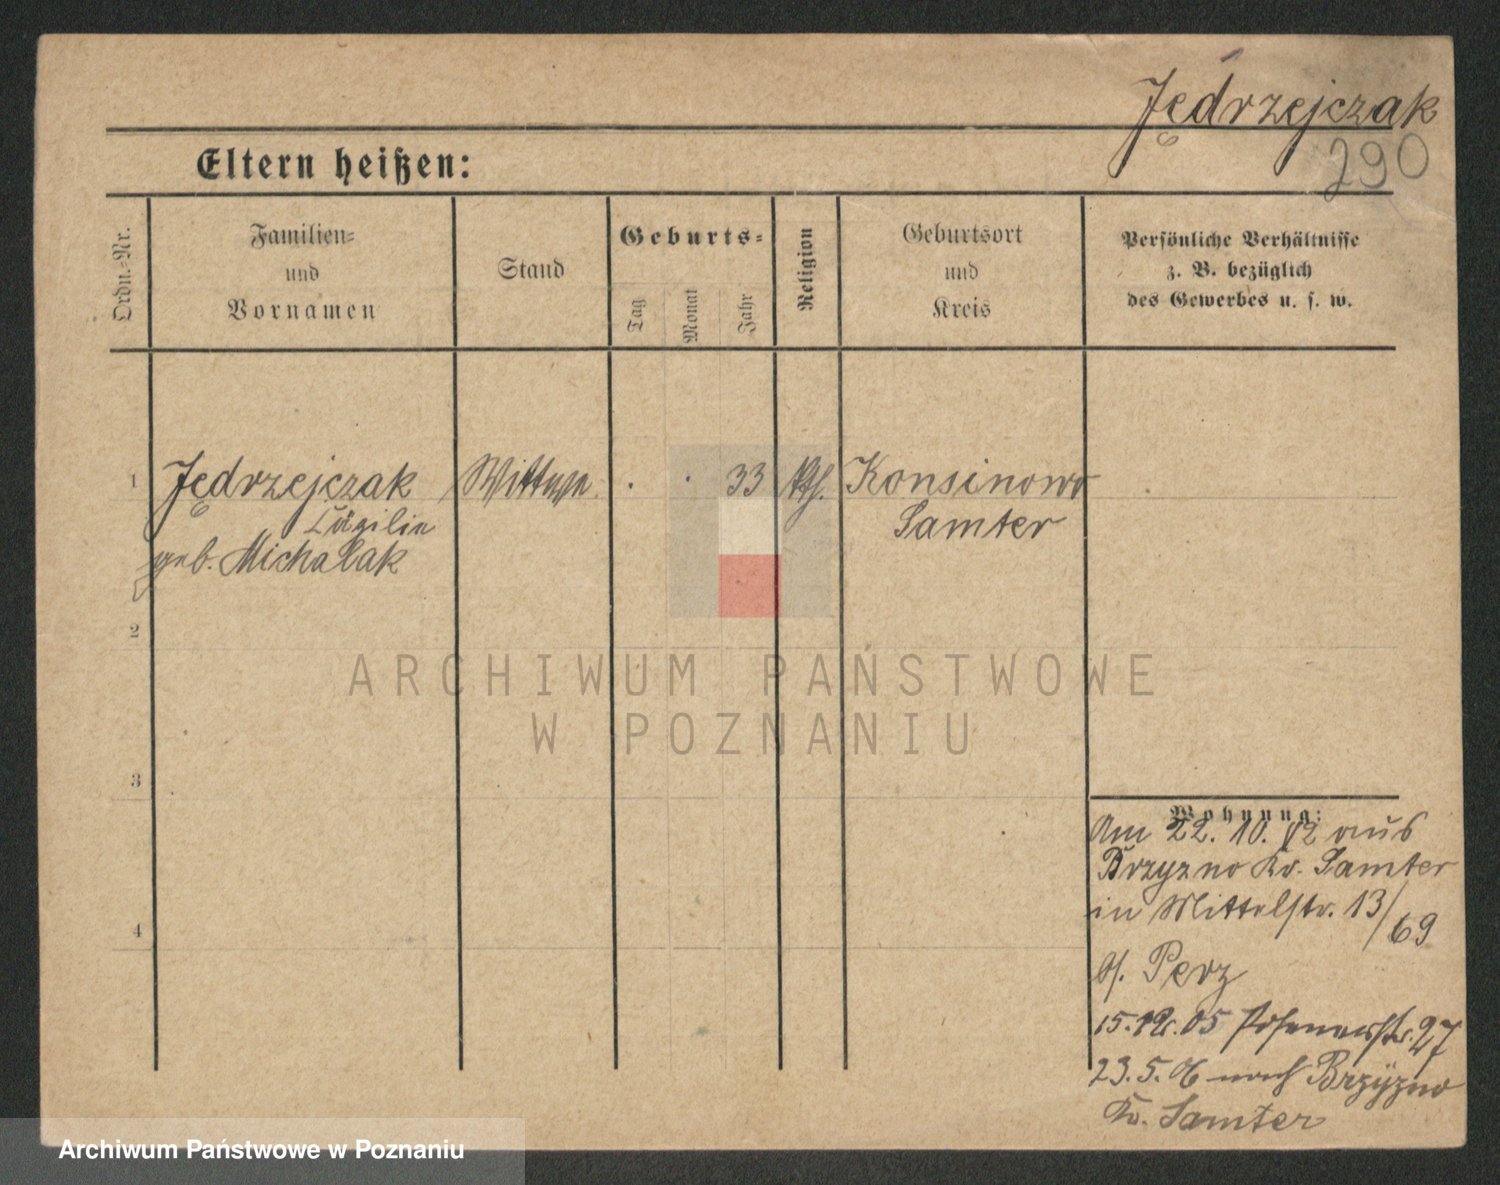 Jędrzejczak
290
Eltern heißen:
Ordn.-Nr.
Familien-
und
Vornamen
Stand
Geburts-
Tag
Monat
Jahr
Religion
Geburtsort
und
Kreis
Persönliche Verhältnisse
z. B. bezüglich
des Gewerbes u. s. w.
1 Jędrzejczak Wittwe . . 33 Kth. Konsinowo
Cäzilie Samter
geb. Michalak
2
ARCHIWUM PAŃSTWOWE
W POZNANIU
3
Wohnung:
Am 22. 10. 02 aus
Brzyzno Kr. Samter
in Mittelstr. 13/69
4
b/. Perz
15. 12. 05 Posenerstr. 27
23. 5. 6 nach Brzyzno
Kr. Samter
Archiwum Państwowe w Poznaniu